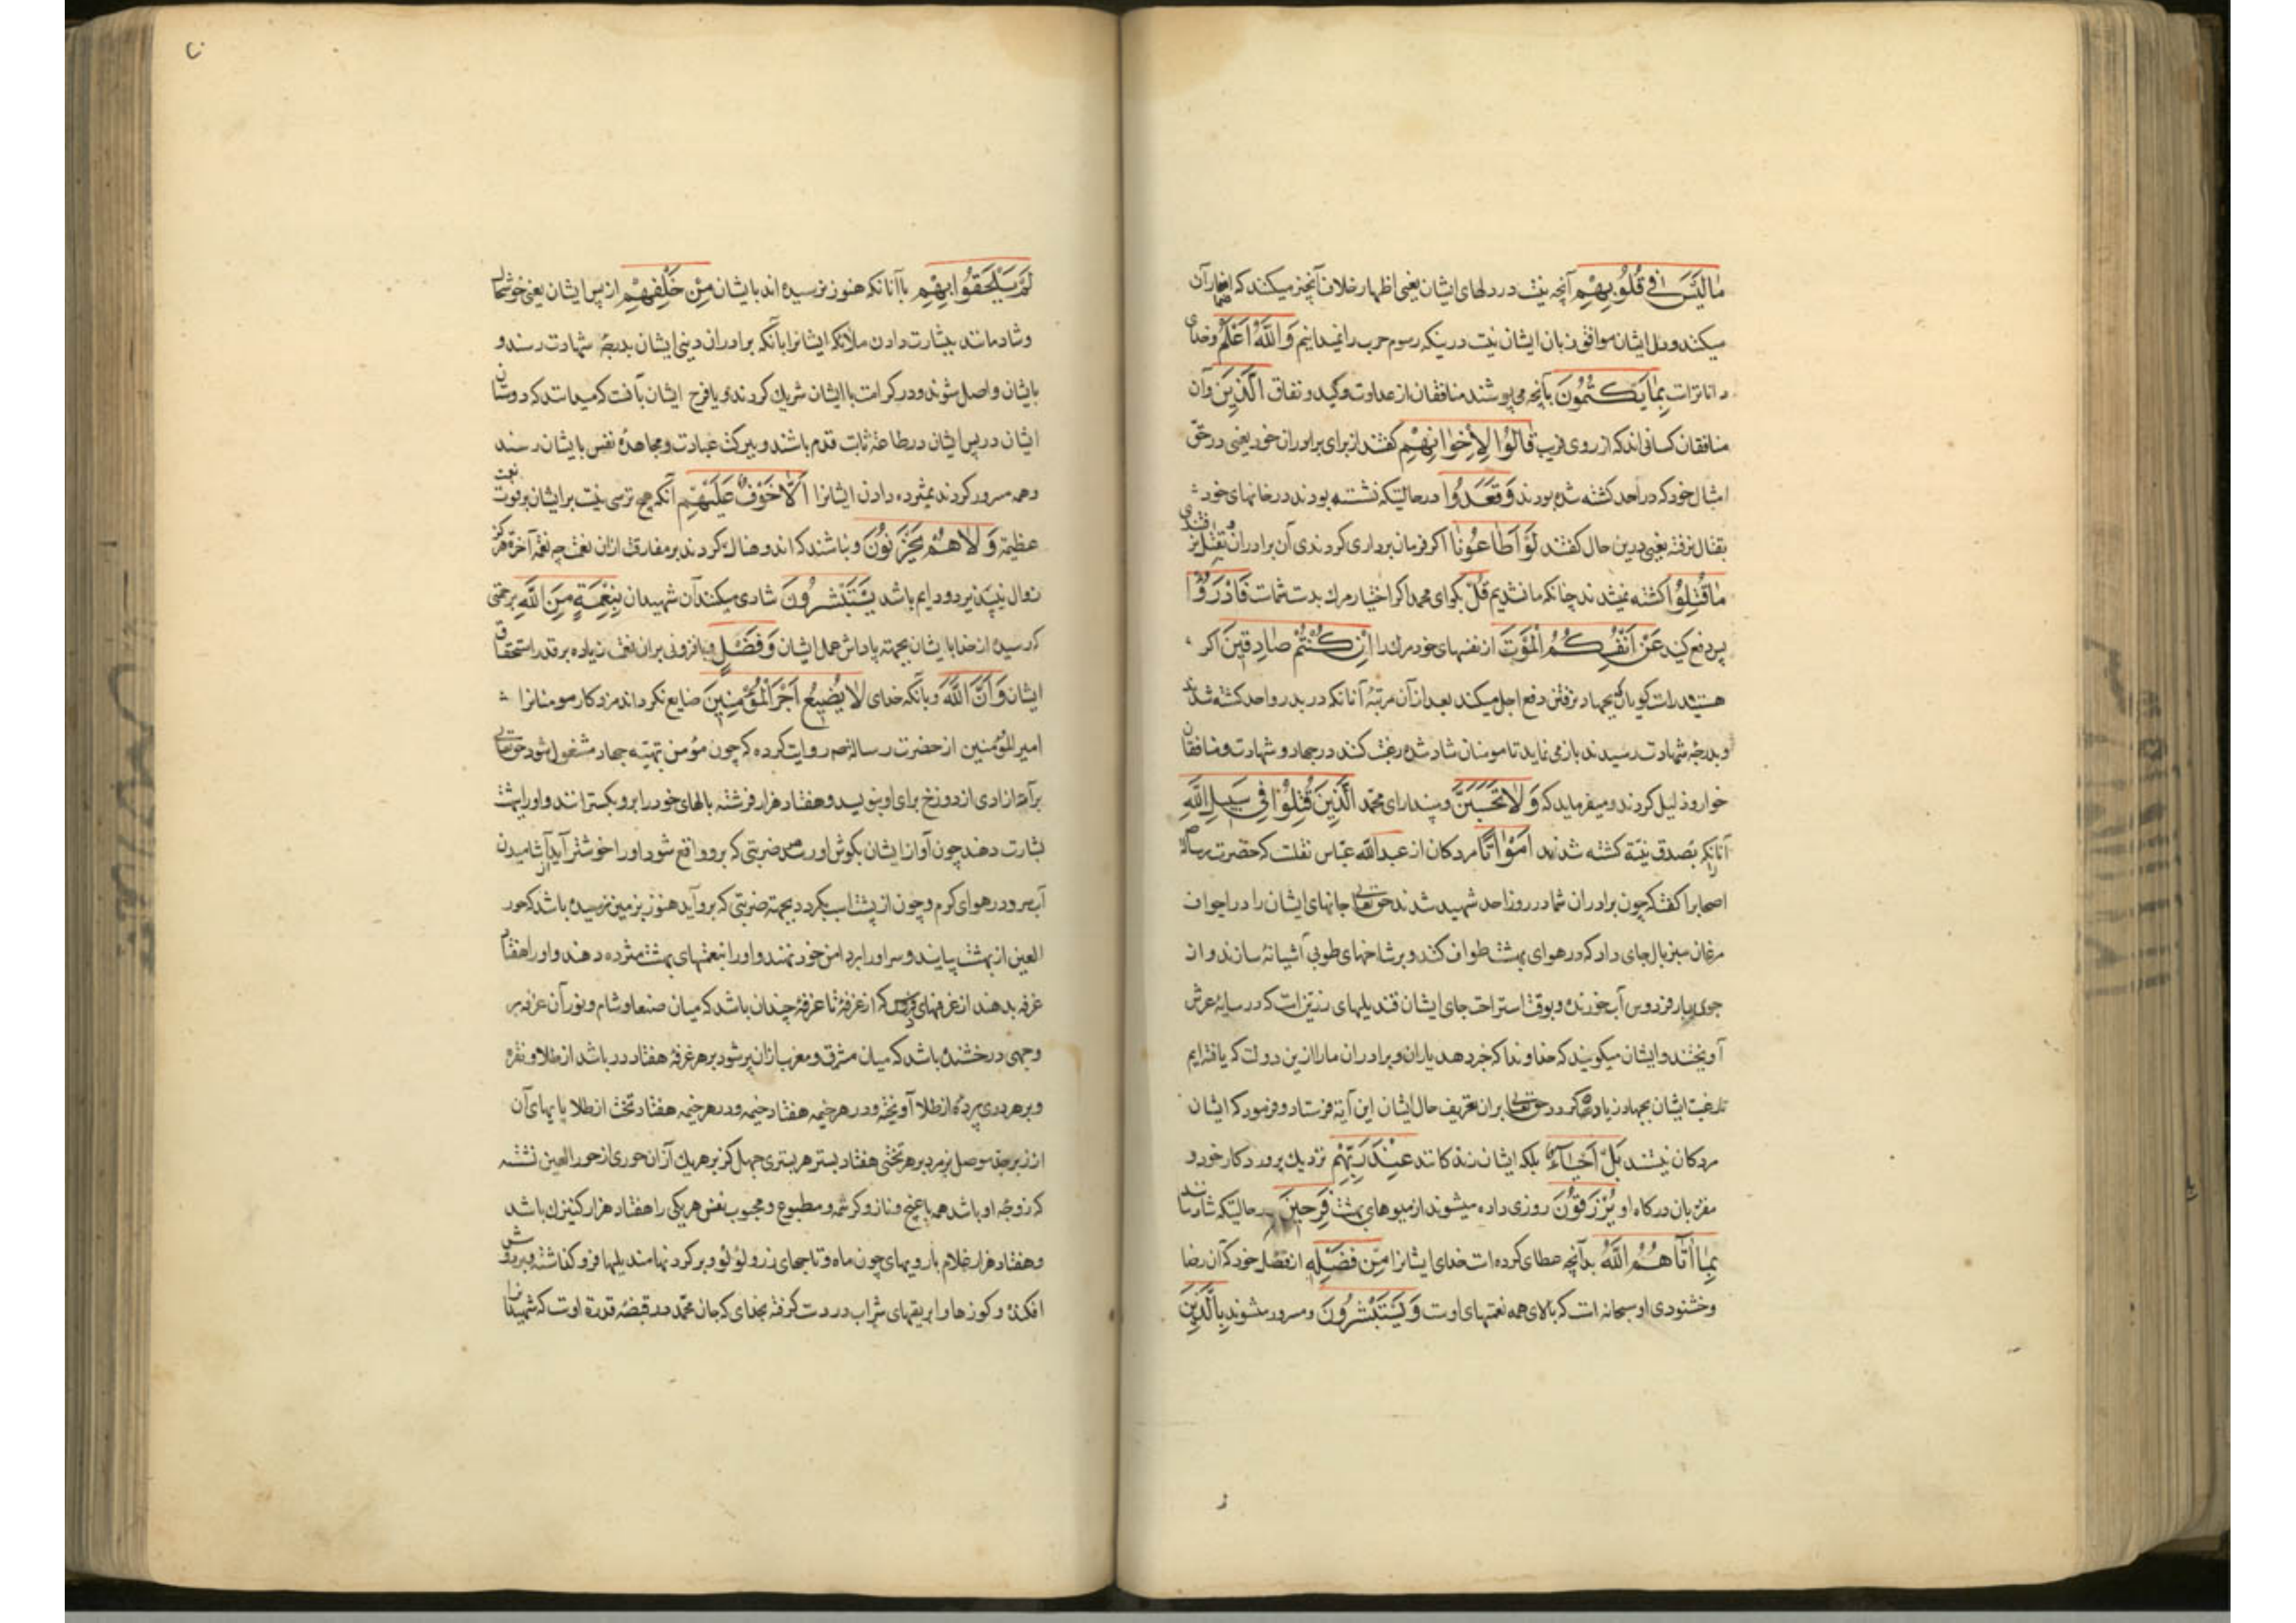 مَا لَیْسَ فِی قُلُوبِهِمْ آنچه نیست در دلهای ایشان یعنی اظهار خلاف آنچیز میکنند که اضمار آن
میکنند و دل ایشان موافق زبان ایشان نیست درینکه رسوم حرب را نمیدانیم وَاللّٰهُ اَعْلَمُ و خدای
داناتراست بِمَا یَکْتُمُونَ بآنچه می پوشند منافقان از عداوت و کید و نفاق اَلَّذِینَ و آن
منافقان کسانی اند که از روی فریب قَالُوا لِاِخْوَانِهِمْ گفتند از برای برادران خود یعنی در حق
امثال خود که در احد کشته شده بودند وَقَعَدُوا در حالتیکه نشسته بودند در خانهای خود
بقتال نرفته یعنی درین حال گفتند لَوْ اَطَاعُونَا اگر فرمان برداری کردندی آن برادران
مَا قُتِلُوا کشته نمیشدند چنانکه ما نشدیم قُلْ بگو ای محمد اگر اختیار مرک بدست شماست فَادْرَؤُا
پس دفع کنید عَنْ اَنْفُسِکُمُ الْمَوْتَ از نفسهای خود مرک را اِنْ کُنْتُمْ صَادِقِینَ اگر
هستید راست کویان بجهاد نرفتن دفع اجل میکند بعد از آن مرتبهٔ آنانکه در بدر و احد کشته شدند
و بدرجهٔ شهادت رسیدند باز می نماید تا مومنان شاد شده رغبت کنند در جهاد و شهادت و منافقان
خوار و ذلیل کردند و میفرماید که وَلَا تَحْسَبَنَّ و مپندار ای محمد الَّذِینَ قُتِلُوا فِی سَبِیلِ اللّٰهِ
آنانکه بصدق نیة کشته شدند اَمْوَاتًا مردکان از عبدالله عباس نقلست که حضرت رسالة
اصحابرا گفت که چون برادران شما در روز احد شهید شدند حق تعالی جانهای ایشان را در اجواف
مرغان سبز بال جای داد که در هوای بهشت طواف کنند و بر شاخهای طوبی آشیانه سازند و از
جوی بار فردوس آب خورند و بوقت استراحت جای ایشان قندیلهای زرینست که در سایهٔ عرش
آویختند و ایشان میکویند که خداوندا که خبر دهد یاران و برادران ما را ازین دولت که یافته ایم
تا رغبت ایشان بجهاد زیاده کردد حق تعالی برای تعریف حال ایشان این آیة فرستاد و فرمود که ایشان
مردکان نیستند بَلْ اَحْیَاءٌ بلکه ایشان زندکانند عِنْدَ رَبِّهِمْ نزدیك پروردکار خود و
مقربان درکاه او یُرْزَقُونَ روزی داده میشوند از میوهای بهشت فَرِحِینَ در حالتیکه شادمانند
بِمَا اٰتَاهُمُ اللّٰهُ بدآنچه عطای کرده است خدای ایشانرا مِنْ فَضْلِهِ از فضل خود که آن رضا
و خشنودی او سبحانه است که بالای همه نعمتهای اوست وَیَسْتَبْشِرُونَ و مسرور میشوند بِالَّذِینَ
لَمْ یَلْحَقُوا بِهِمْ باآنانکه هنوز نرسیده اند بایشان مِنْ خَلْفِهِمْ از پس ایشان یعنی خوشحال
و شادمانند ببشارت دادن ملائکه ایشانرا بآنکه برادران دینی ایشان بدرجهٔ شهادت رسند و
بایشان واصل شوند و در کرامت با ایشان شریك کردند و یا فرح ایشان بآنست که میدانند که دوستان
ایشان در پس ایشان در طاعة ثابت قدم باشند و ببرکت عبادت و مجاهدهٔ نفس بایشان رسند
و همه مسرور کردند بمژده دادن ایشانرا اَلَّا خَوْفٌ عَلَیْهِمْ آنکه هیچ ترسی نیست بر ایشان بر فوت نعمت
عظیمة وَلَا هُمْ یَحْزَنُونَ و نباشند که اندوهناك کردند بر مفارقت ازان نعمت چه نعمة آخرة هرکز
زوال نپذیرد و دایم باشد یَسْتَبْشِرُونَ شادی میکنند آن شهیدان بِنِعْمَةٍ مِنَ اللّٰهِ برحمتی
که رسیده از خدا بایشان بجهة پاداش عمل ایشان وَفَضْلٍ و بافزونی بران نعمت زیاده بر قدر استحقاق
ایشان وَاَنَّ اللّٰهَ و بآنکه خدای لَا یُضِیعُ اَجْرَ الْمُؤْمِنِینَ ضایع نکرداند مزد کار مومنانرا
امیر المؤمنین از حضرت رسالة روایت کرده که چون مؤمن بتهیهٔ جهاد مشغول شود حق تعالی
براة آزادی از دوزخ برای او بنویسد و هفتاد هزار فرشته بالهای خود را برو بکسترانند و او را ببهشت
بشارت دهند چون آواز ایشان بکوش او رسد ضربتی که برو واقع شود او را خوشتر آید از آشامیدن
آب سرد در هوای کرم و چون از پشت اسب بکردد بجهة ضربتی که برو آید هنوز بزمین نرسیده باشد که حور
العین از بهشت بیایند و سر او را بر دامن خود نهند و او را بنعمتهای بهشت مژده دهند و او را هفتاد
غرفه بدهند از غرفهای فردوس که از غرفهٔ تا غرفهٔ چندان باشد که میان صنعا و شام و نور آن غرفه بر
وجهی درخشنده باشد که میان مشرق و مغرب ازان پر شود بر هر غرفهٔ هفتاد در باشد از طلا و نقره
و بر هر دری پردهٔ از طلا آویخته و در هر خیمه هفتاد خیمه و در هر خیمه هفتاد تخت از طلا پایهای آن
از زبرجد موصل بزمرد بر هر تختی هفتاد بستر هر بستری چهل کز بر هر یك از آن حوری از حور العین نشسته
که زوجهٔ او باشد همه با غنج و ناز و کرشمه و مطبوع و محبوب نفس هر یکی را هفتاد هزار کنیزك باشد
و هفتاد هزار غلام با رویهای چون ماه و تاجهای زر و لؤلؤ و بر کردنها مندیلها فرو کذاشته و بر دوش
افکنده و کوزها و ابریقهای شراب در دست کرفته بخدای که جان محمد در قبضهٔ قدرة اوست که شهیدان